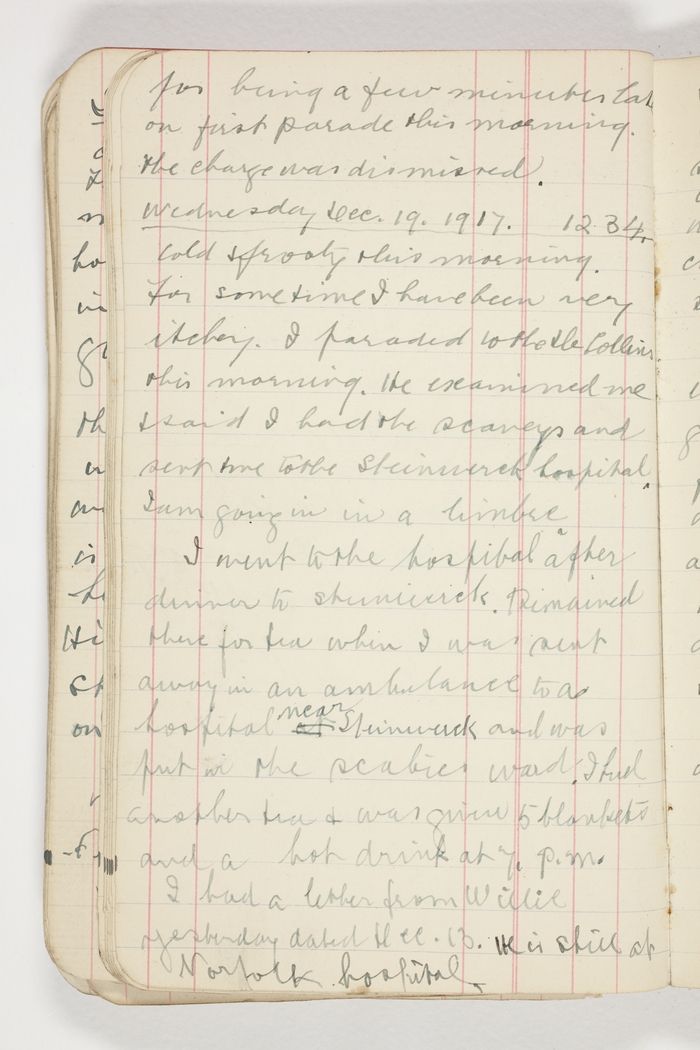 for being a few minutes late
on first parade this morning.
the charge was dismissed.
Wednesday Dec. 19. 1917. 1234.
Cold & frosty this morning.
For sometime I have been very
itchey. I paraded to the Collins
this morning. He examined me
& said I had the scaveys and
sent me to the Steinwerck hospital.
I am going in in a limber
I went to the hospital after
dinner to Steinwerck. Remained
there for tea when I was sent
away in an ambulance to a
hospital near Steinwerck and was
put in the scabies ward. I had
another tea & was given 5 blankets
and a hot drink at 7. p.m.
I had a letter from Willie
yesterday dated Dec. 13. He is still at
Norfolk hospital.